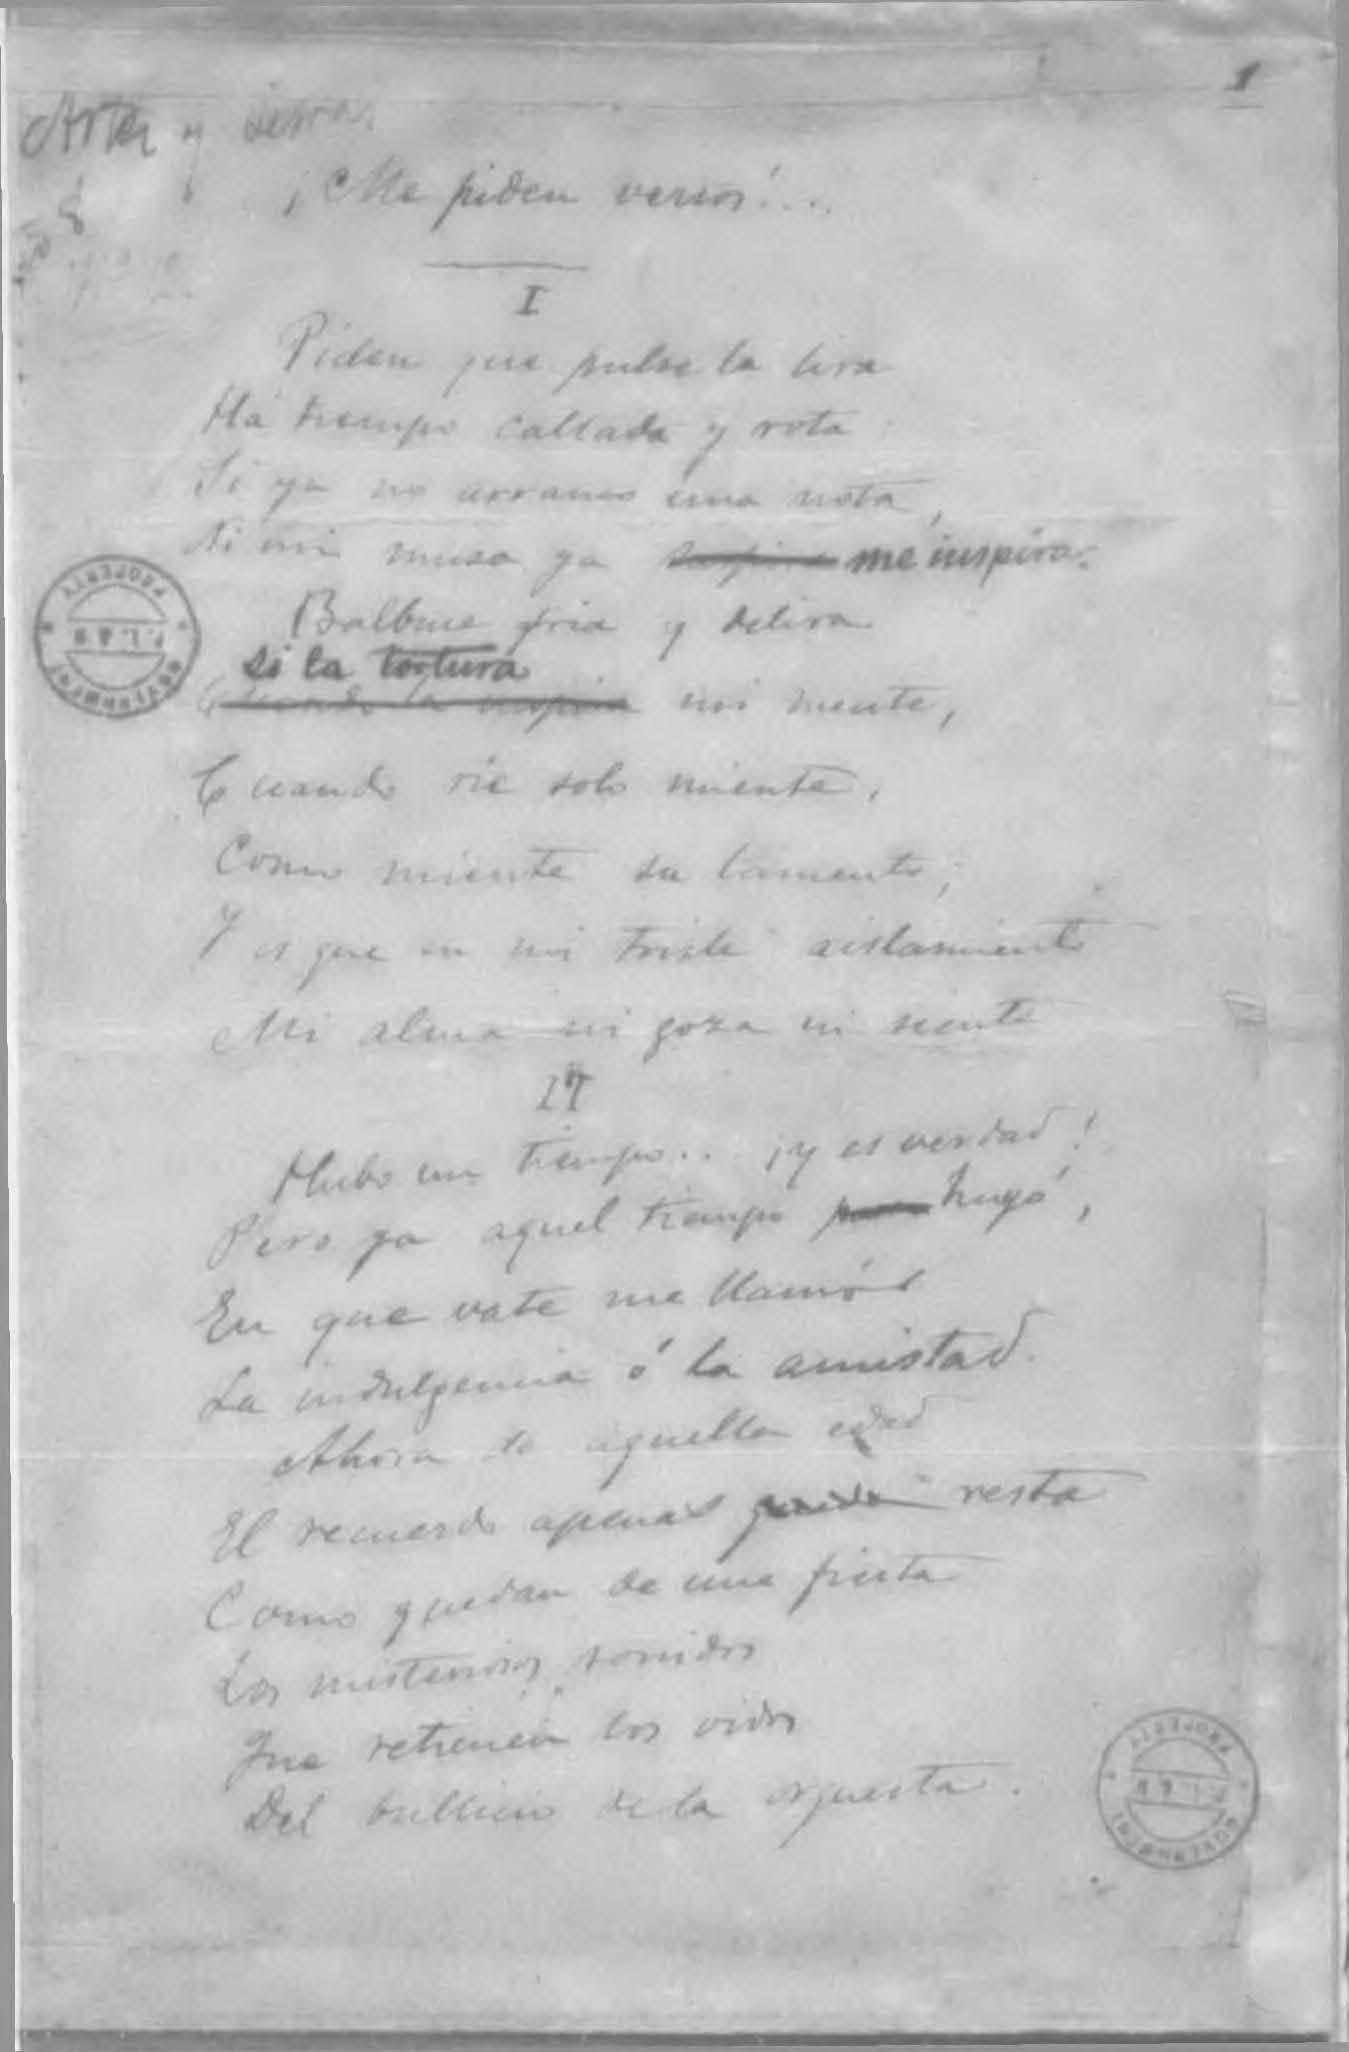 1
Artes y Letras
8
¡Me piden versos!...
I
Piden que pulse la lira
Há tiempo callada y rota:
Si ya no arranco una nota,
Ni mi musa ya me inspira.
Balbuce fria y delira
si la tortura
mi mente,
Cuando rie solo miente,
Como miente su lamento;
Y es que en mi triste aislamiento
Mi alma ni goza ni siente
II
Hubo un tiempo.. ¡y es verdad!
Pero ya aquel tiempo huyó,
En que vate me llamó
La indulgencia ó la amistad.
Ahora de aquella edad
El recuerdo apenas resta
Como quedan de una fiesta
Los misteriosos sonidos
Que retienen los oidos
Del bullicio de la orquesta.
PROPERTY
P.L.&M
GOVERNMENT
PROPERTY
P.L.&M
GOVERNMENT